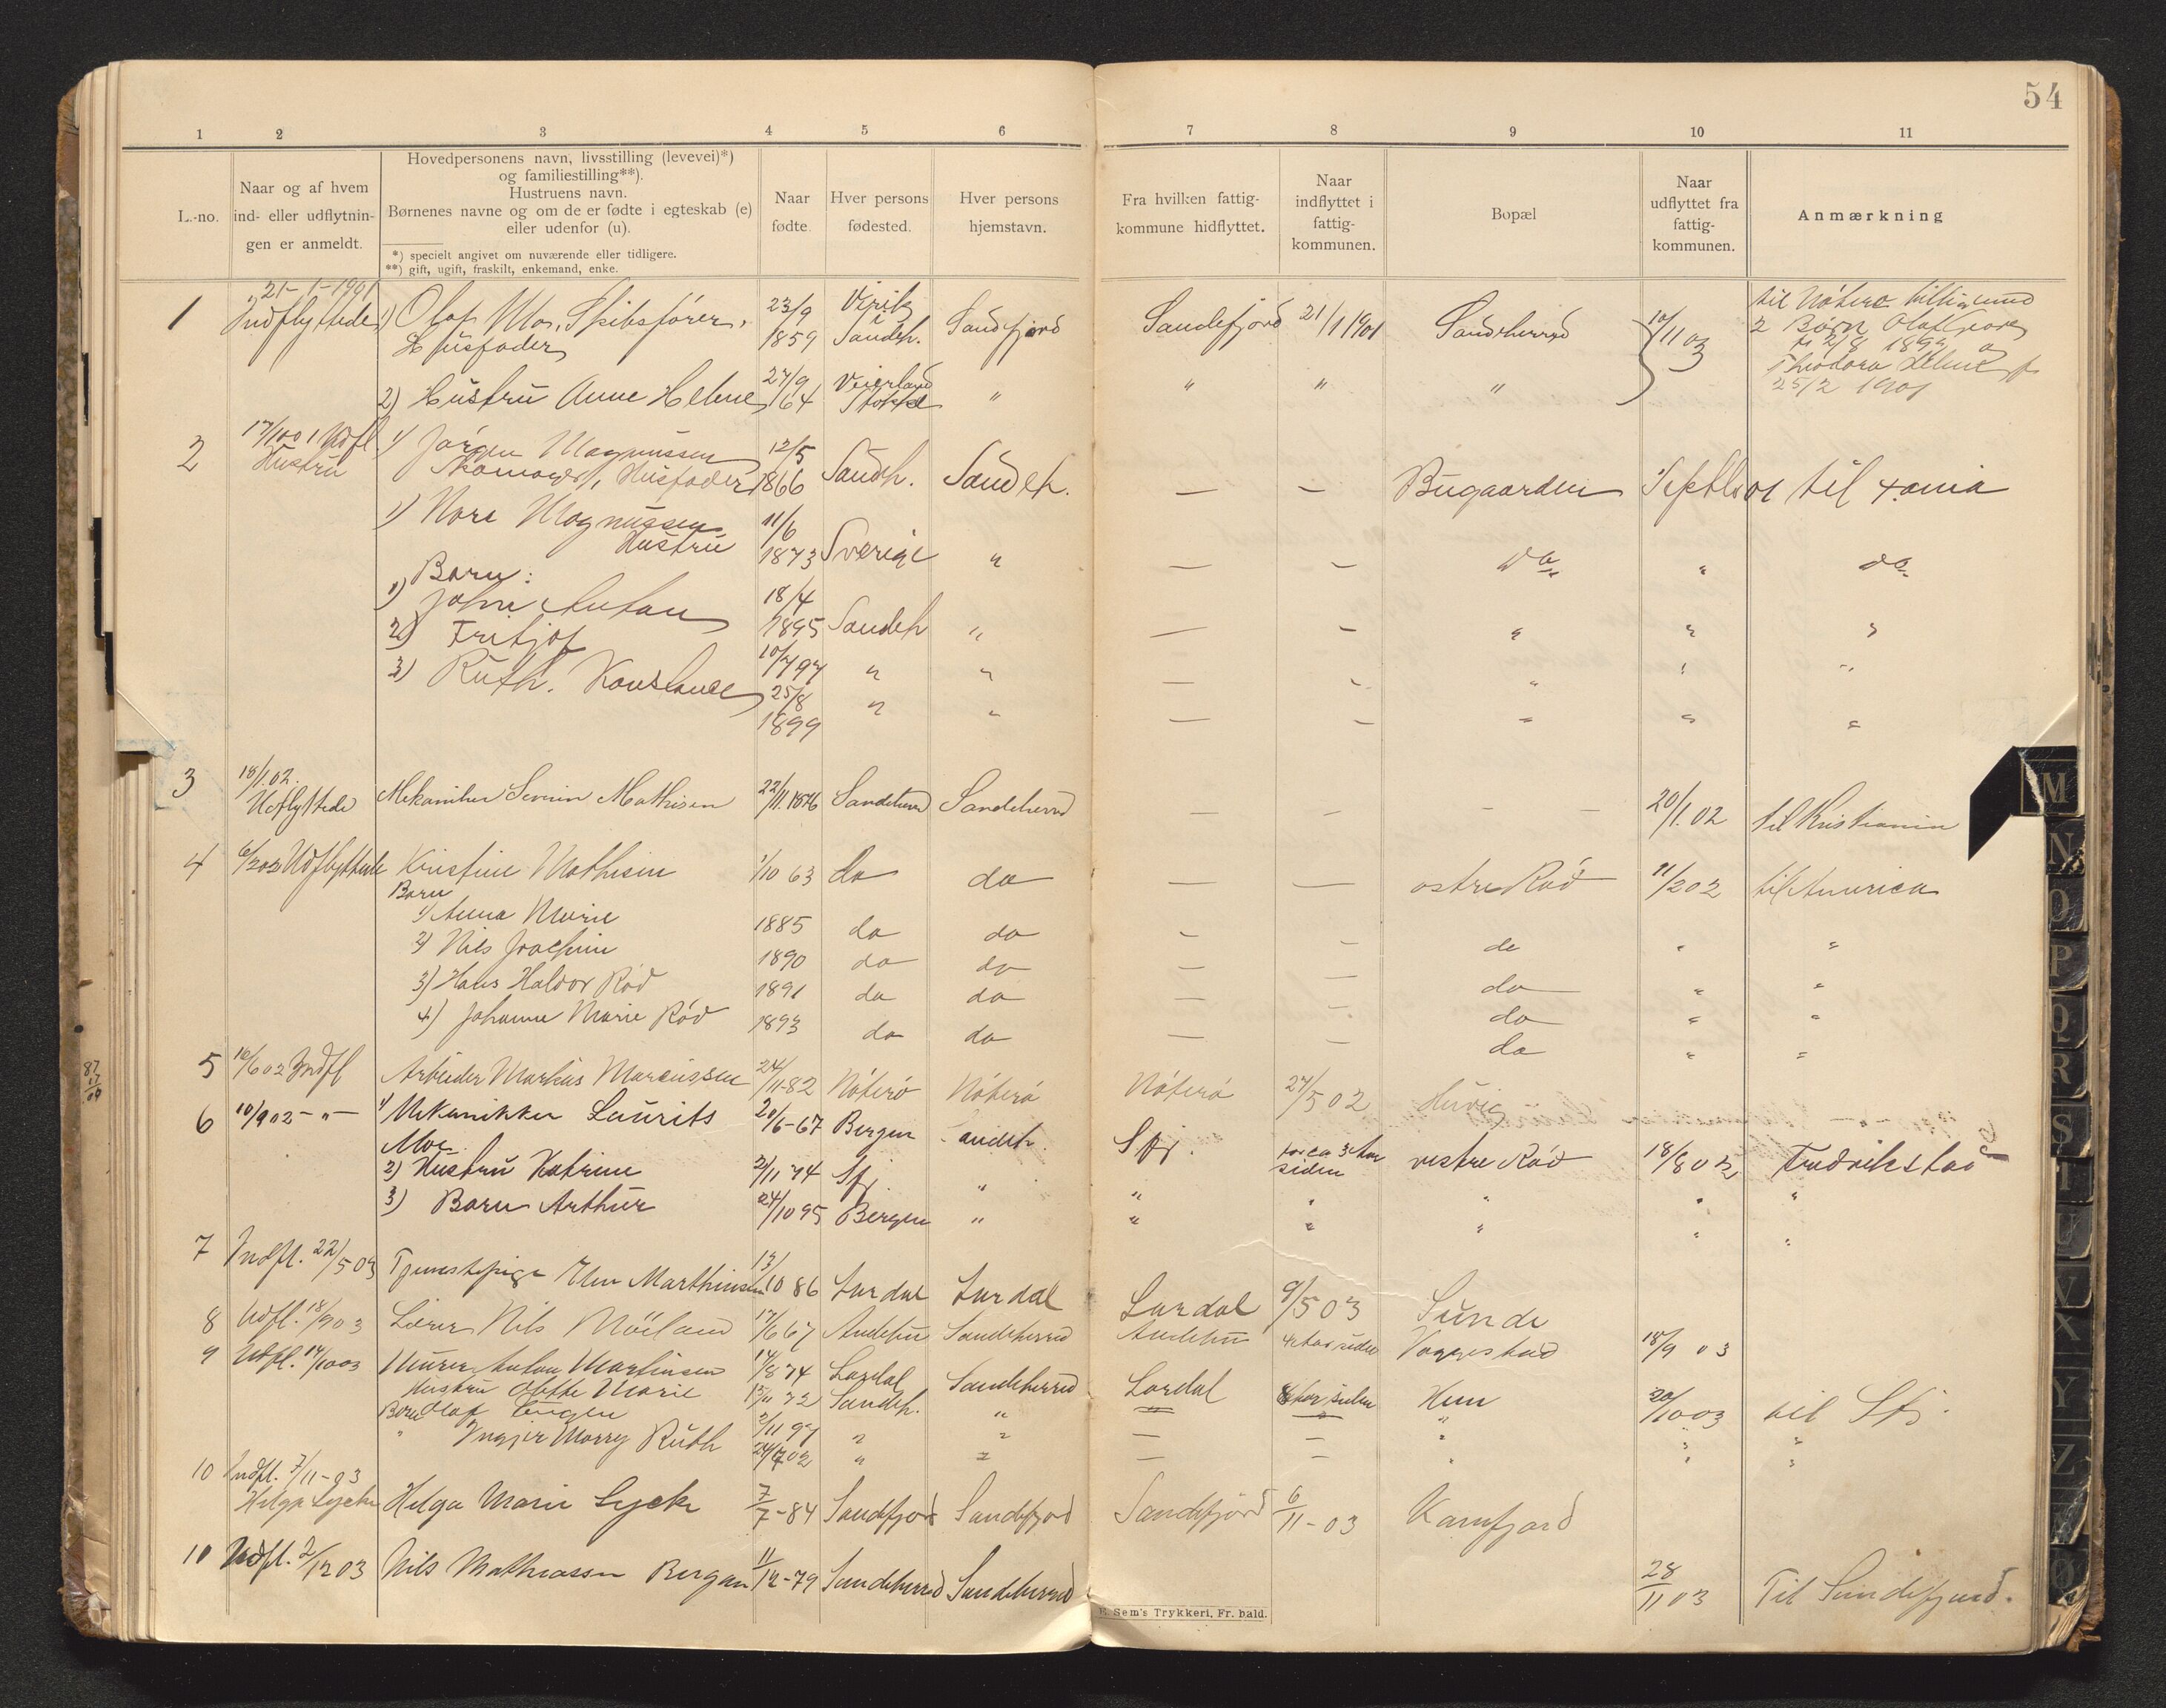 54
1 2 3 4 5 6 7 8 9 10 11
L.-no.
Naar og af hvem
ind- eller udflytnin-
gen er anmeldt.
Hovedpersonens navn, livsstilling (levevei)*)
og familiestilling**).
Hustruens navn.
Børnenes navne og om de er fødte i egteskab (e)
eller udenfor (u).
*) specielt angivet om nuværende eller tidligere.
**) gift, ugift, fraskilt, enkemand, enke.
Naar
fødte.
Hver persons
fødested.
Hver persons
hjemstavn.
Fra hvilken fattig-
kommune hidflyttet.
Naar
indflyttet i
fattig-
kommunen.
Bopæl
Naar
udflyttet fra
fattig-
kommunen.
Anmærkning
21-1-1901
1 Indflyttede 1) Olaf Moe, Skibsfører, 23/9 1859 Virik Sandeh. Sandefjord Sandefjord 21/1 1901 Sandeherred 10/11 03 til Nøterø
Husfader
2 Børn Olaf
2/8 1899 og
Theodora Helene f.
25/2 1901
2) Hustru Anne Helene 27/9 64 Veierland Stokke " " " "
2 17/10 01 Udfl 1) Jørgen Magnussen 12/5
Hustru Skomager, Husfader 1866 Sandh. Sandeh. — — Bugaarden Septbr 01 til Xania
1) Nora Magnussen 11/6
Hustru 1873 Sverige " — — do " do
Barn:
1) John Anton 18/4 1895 Sandeh " — — " " "
2) Fritjof 10/7 97 " " — — " " "
3) Ruth. Konstance 25/8 1899 " " — — " " "
3 18/1.02. Udflyttede Mekaniker Severin Mathisen 22/11.1876 Sandeherred Sandeherred — — — 20/1.02 til Kristiania
4 6/2 02 Udflyttede Kristine Mathisen 1/10 63 do do — — østre Rød 11/2 02 til America
Barn
1) Anna Marie 1885 do do — — do " "
2) Nils Joachim 1890 do do — — do " "
3) Hans Haldor Rød 1891 do do — — do " "
4) Johanne Marie Rød 1893 do do — — do " "
87
17
09
5 10/6 02 Indfl Arbeider Markus Marcussen 24/11-82 Nøterø Nøterø Nøterø 27/5 02
6 10/9 02 — " — 1) Mekanikker Laurits 20/6-67 Bergen Sandeh. Sfj. for ca 3 Aar siden vestre Rød 18/8 02 Fredrikstad
Moe
2) Hustru Katrine 2/11 74 Sfj. " " " " " "
3) Barn Arthur 24/10 95 Bergen " " " " " "
7 Indfl. 22/5 03 Tjenestepige Elen Marthinsen 13/10 86 Lardal Lardal Lardal 9/5 03 Sunde
8 Udfl. 18/9 03 Lærer Nils Möiland 17/6 67 Andebu Sandeherred Andebu 4 Aar siden Vaggestad 18/9 03
9 Udfl. 14/10 03 Murer Anton Martinsen 14/8 74 Lardal Sandeherred Lardal Aar siden Hem 20/10 03 til Sfj.
Hustru Marie 15/11 72 Sandeh. "
Barn Olaf Eugen 2/11 97 " " — — " " "
" Ruth 24/7 02 " " — — " " "
10 Indfl. 7/11-03
Helga Lycke Helga Marie Lycke 7/7-84 Sandefjord Sandefjord Sandefjord 6/11-03 Kamfjord
10 Udfl. 2/12 03 Nils Mathiassen Bergan 11/12-79 Sandeherred Sandeherred 28/11 03 Til Sandefjord.
E. Sem's Trykkeri, Fr. hald.
M
N
O
P
Q
R
S
T
U
V
X
Y
Z
Æ
Ø